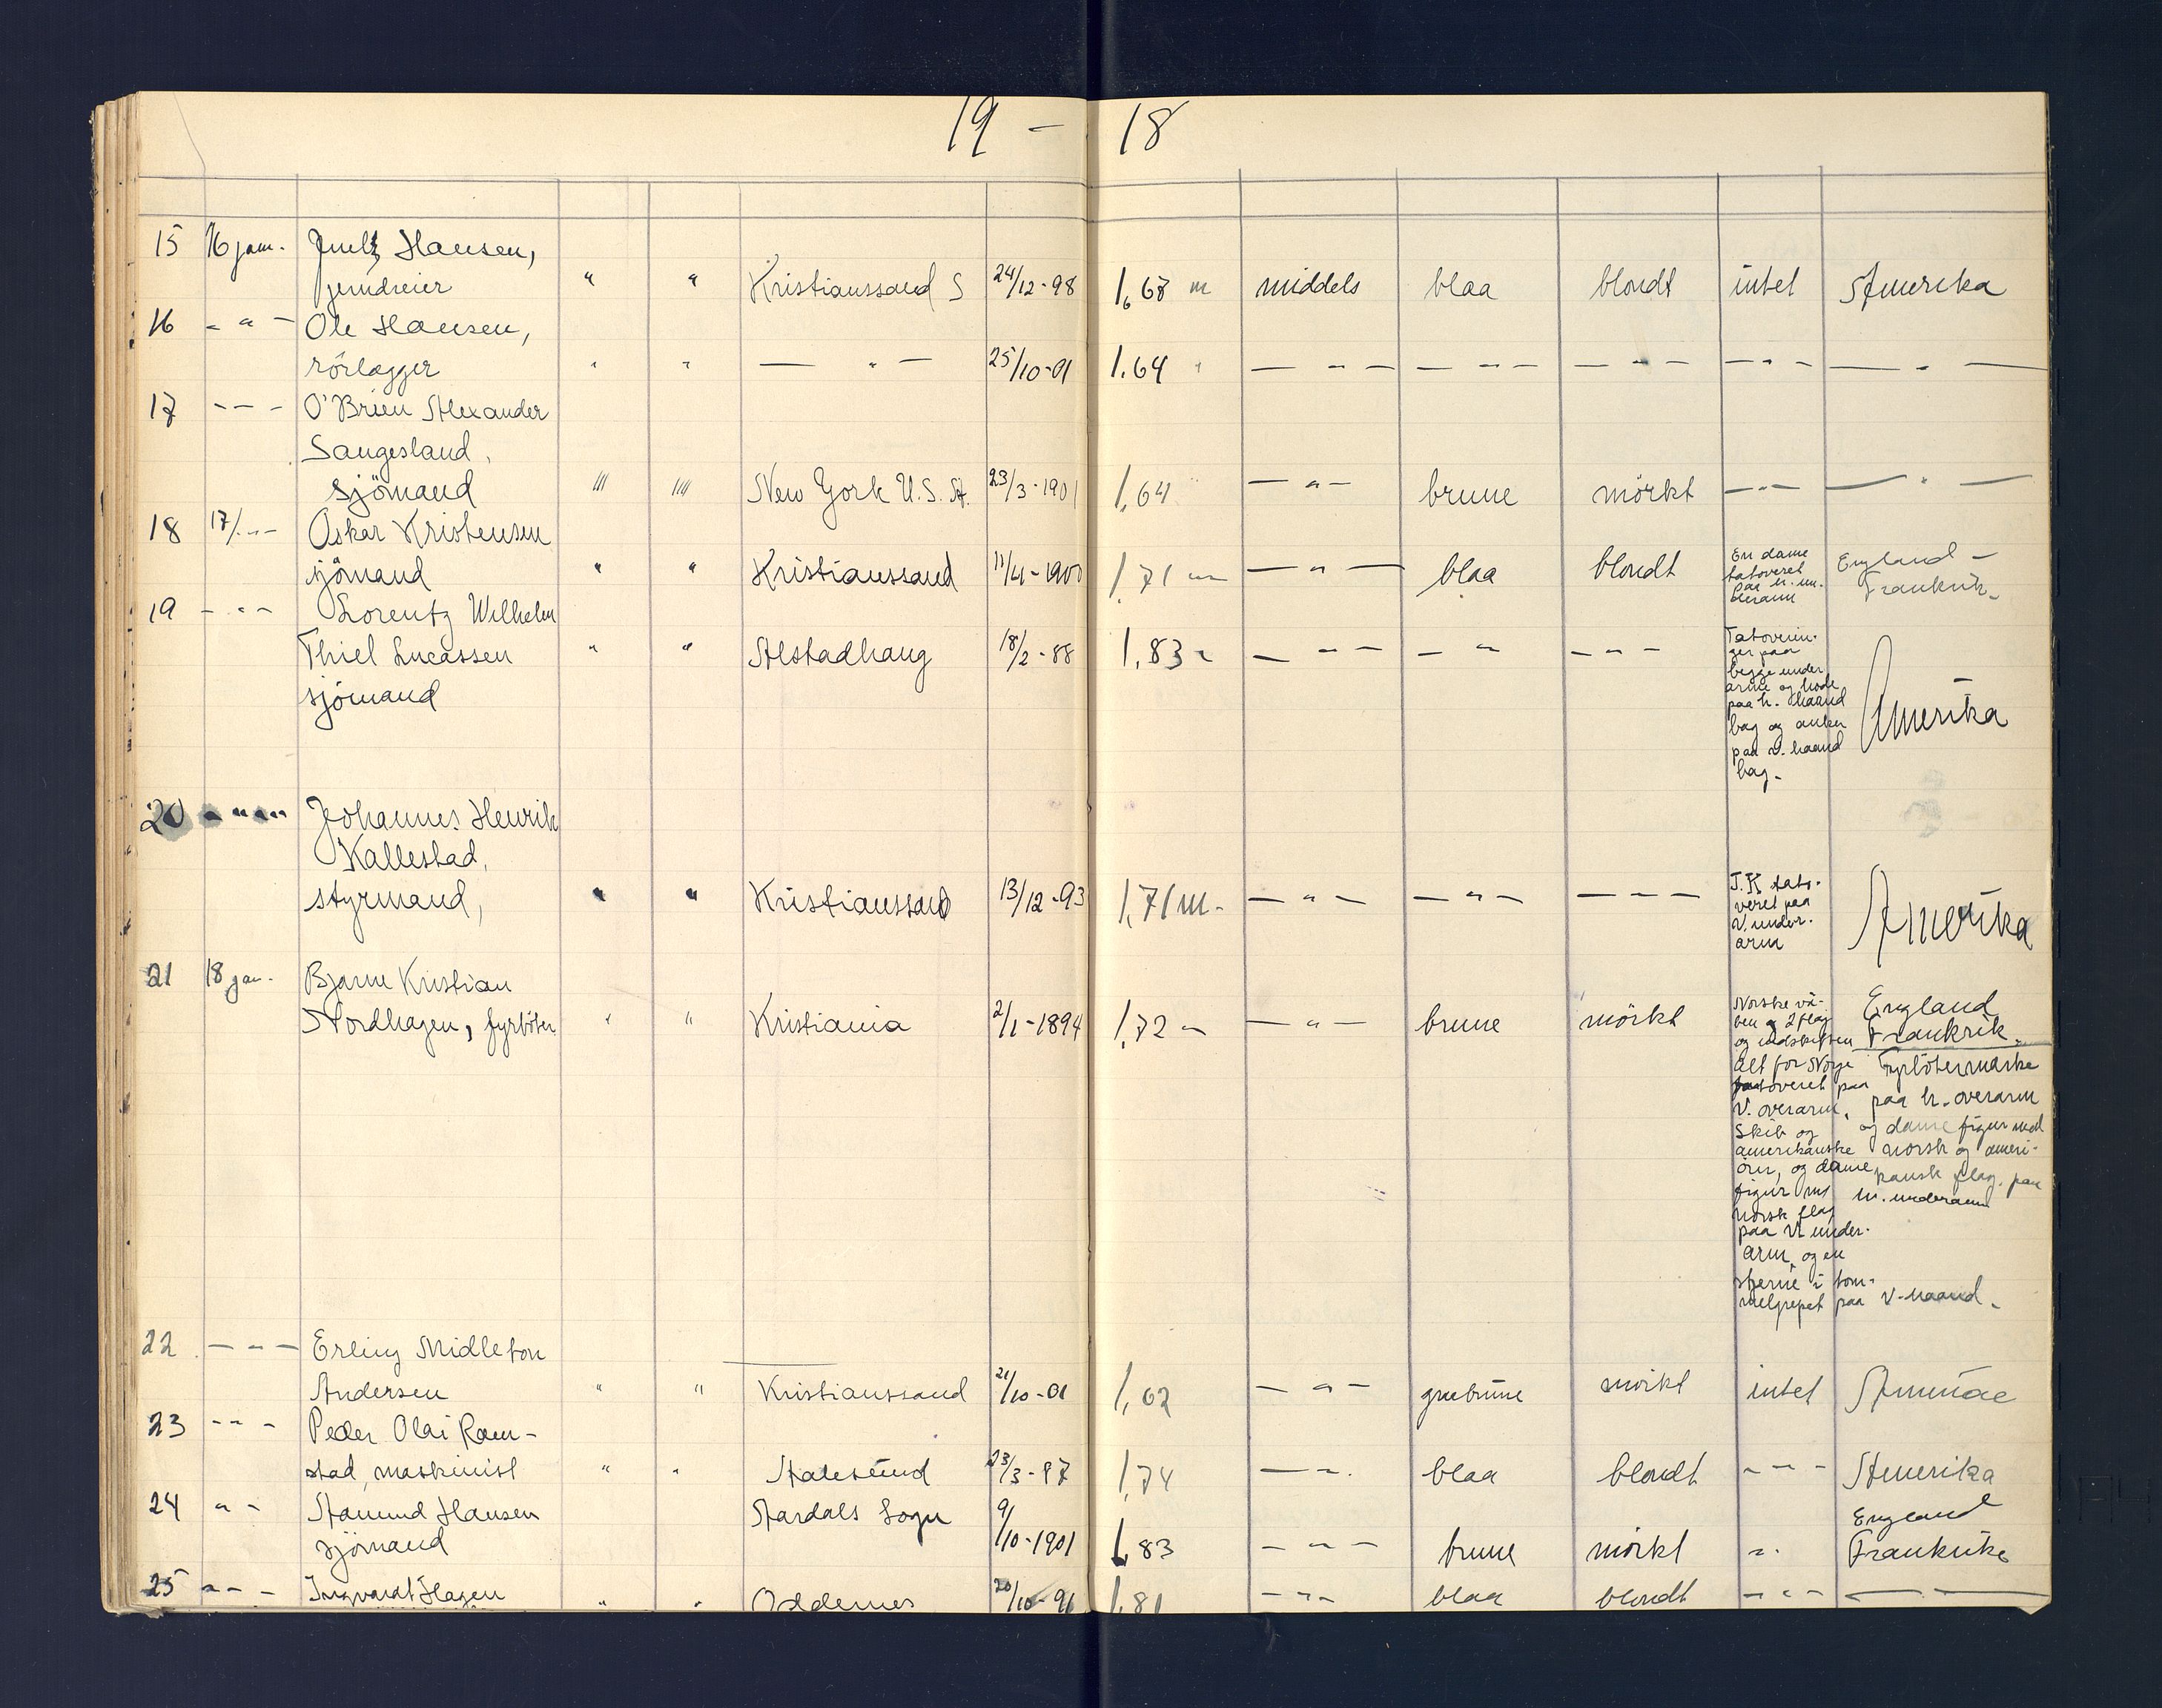 19 – 18
15 16 jan. Hansen,
jerndreier " " Kristianssand S 24/12-98 1,68 m middels blaa blondt intet Amerika
16 - " - Ole Hansen,
rörlægger " " — " — 25/10-01 1.64 " — " — — " — — " — — " — — " —
17 - - - O'Brien Alexander
Saugesland,
sjömand " " New York U.S.A. 23/3-1901 1,64 — " — brune mörkt — " — — " —
18 17/. - - Oskar Kristensen
sjömand " " Kristianssand 11/4-1900 1,71 m — " — blaa blondt En dame
tatoveret
paa h. un-
derarm England –
Frankrik.
19 - " - Lorentz Wilhelm
Thiel Lucassen " " Alstadhaug 18/2-88 1,83 — " — — " — — " —
sjömand
Tatoverin-
ger paa
begge under
arme og
paa h. haand
bag og anker
paa v. haand
bag. Amerika
20 - " - " Johannes Henrik
Kallestad,
styrmand, " " Kristianssand 13/12-93 1,71 m. — " — — " — — " — J.K tato-
veret paa
V. under-
arm Amerika
21 18 jan. Bjarne Kristian
Nordhagen, fyrböter " " Kristiania 2/1-1894 1,72 — " — brune mörkt Norske vå-
ben og 2 flag
og indskriften
Alt for Norge
tatoveret paa
V. overarm,
Skib og
amerikanske
örn, og dame
figur m
norsk flag
paa V. under-
arm, og en
stjerne i tom-
melgrepet paa V. haand.
England
Frankrik.
Fyrbötermærke
paa h. overarm
og dame figur med
norsk og ameri-
kansk flag. paa
h. underarm
22 — " — Erling Midleton
Andersen " " Kristianssand 21/10-01 1,62 — " — graabrune mörkt intet
23 - " - Peder Olai Ram-
stad, maskinist " " Aalesund 23/3-87 1,74 — " . blaa blondt - " - Amerika
24 " - Amund Hansen Aardals Sogn 9/10-1901 England
sjömand 1,83 - " - brune mörkt " . Frankrike
25 - " - Ingvardt Hagen " " Oddernes 20/10-96 1,81 - " - blaa blondt - " - — —